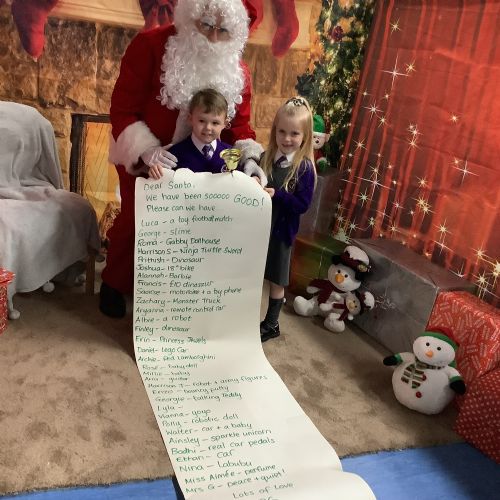 Dear Santa,
We have been sooooo GOOD!
Please can we have
Luca - a toy football match
George - slime
Roma - Gabby Dollhouse
Harrison S - Ninja Turtle Sword
Prithush - Dinosaur
Joshua - 18" bike
Alannah - Barbie
Francis - £10 dinosaur
Saoirse - motorbike + a toy phone
Zachary - Monster Truck
Aryanna - remote control car
Albie - a robot
Finley - dinosaur
Erin - Princess Jewels
Daniel - Lego Car
Archie - Red Lamborghini
Rose - baby doll
Millie - baby
Aria - guitar
Harrison T - robot + army figures
Erned - bouncy putty
Georgie - talking Teddy
Lyla -
Vianna - yoyo
Pony - robotic doll
Walter - car + a baby
Ainsley - sparkle unicorn
Bodhi - real car pedals
Ethan - Car
Nina - Labubu
Miss Aimée - perfume
Mrs G - peace + quiet!
Lots of Love